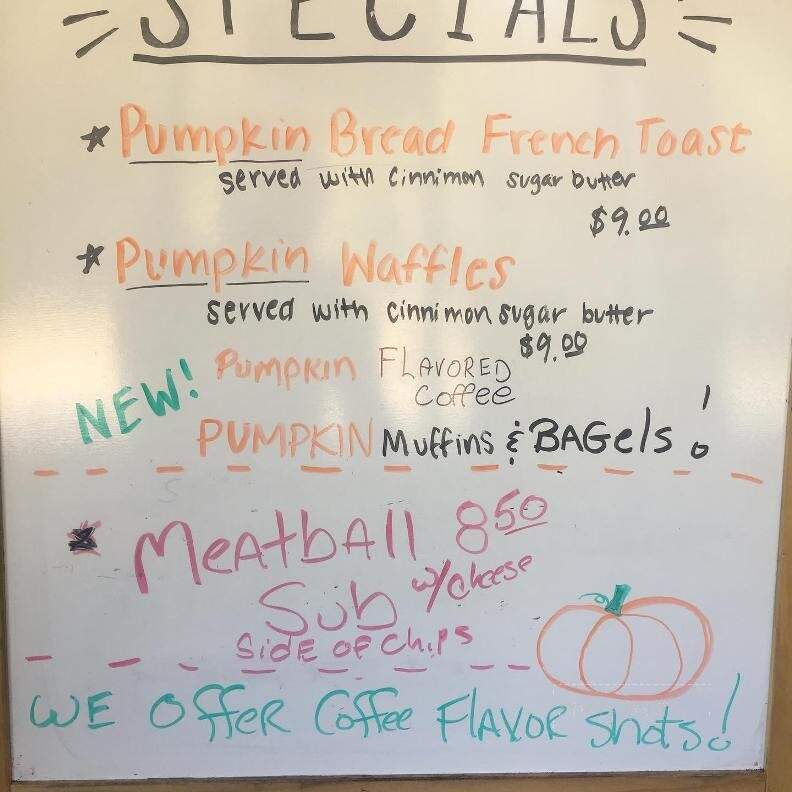 SPECIALS
* Pumpkin Bread French Toast
served with cinnimon sugar butter
$9.00
* Pumpkin Waffles
served with cinnimon sugar butter
$9.00
NEW! Pumpkin FLAVORED
Coffee
PUMPKIN Muffins & BAGels!
* MeatbAll 8.50
Sub w/cheese
SiDE OF ChiPS
WE OFFER Coffee FLAVOR shots!